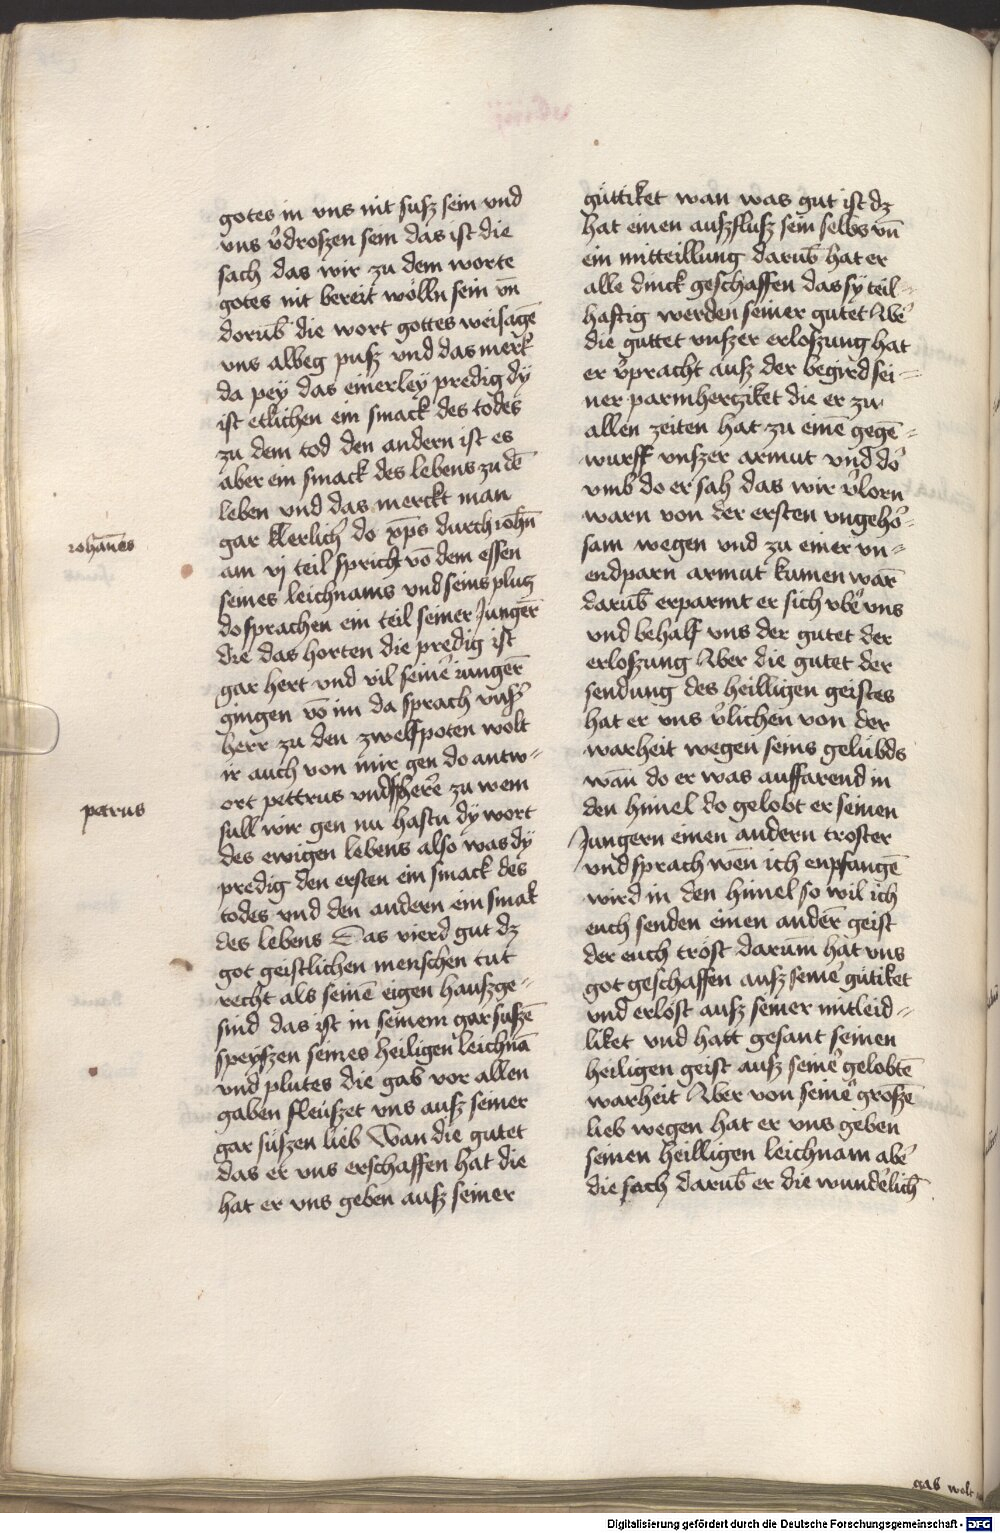 gotes in vns nit susz sein vnd
vns v̉droszen sein das ist die
sach das wir zu dem worte
gotes nit bereit wölln sein vn̄
dorub̄ die wort gottes weisagē
vns albeg pusz vnd das merk
da peÿ das einerleÿ predig dÿ
ist etlichen ein smack des todes
zu dem tod den andern ist es
aber ein smack des lebens zu dē
leben vnd das merckt man
gar klerlich̉ do xp̄s durch ioh̄n
am vj teil spricht vō dem essen
seines leichnams vnd seins plutz
do sprachen ein teil seiner Junger̄
die das horten die predig ist
gar hert vnd vil seinē iunger̄
gingen vō im da sprach vnsz̉
herr zu den zwelfpoten wolt
ir auch von mir gen do antw-
ort pettrus vnd sherē zu wem
sull wir gen nu hastu dÿ wort
des ewigen lebens also was dÿ
predig den ersten ein smack des
todes vnd den andern ein smak
des lebens Das vierd gut dz
got geistlichen menschen tut
recht als seinē eigen hauszge-
sind das ist in seinem gar suszē
speÿszen seines heiligen leichnā
vnd plutes die gab vor allen
gaben fleuszet vns ausz seiner
gar suszen lieb Wan die gutet
das er vns erschaffen hat die
hat er vns geben ausz seiner
iohānes
petrus
güttiket wan was gut ist dz
hat einen auszflusz sein selbs vn̄
ein mitteillung darub̄ hat er
alle dinck geschaffen das sÿ teil-
haftig werden seiner gutet Ab̉
die guttet vnszer erloszung hat
er v̉pracht ausz der begird sei-
ner parmhercziket die er zu
allen zeiten hat zu einē gegē-
wurff vnszer armut vnd do̓
vmb do er sah das wir v̉lorn
warn von der ersten vngeho̓-
sam wegen vnd zu einer vn-
endparn armut kumen war̄
darub̄ erparmt er sich vbe̓ vns
vnd behalf vns der gutet der
erloszung Aber die gutet der
sendung des heilligen geistes
hat er vns v̉lichen von der
warheit wegen seins gelübds
wān do er was auffarend in
den himel do gelobt er seinen
Jungern einen andern troster
vnd sprach wen̄ ich enpfangē
wird in den himel so wil ich
euch senden einen ander̄ geist
der euch tröst darum̄ hat vns
got geschaffen ausz seine̓ gütiket
vnd erlost ausz seiner mitleid-
liket vnd hatt gesant seinen
heiligen geist ausz seine̓ gelobtē
warheit Aber von seine̓ groszē
lieb wegen hat er vns geben
seinen heilligen leichnam abe̓
die sach darub̄ er die wunde̓lich̄
gab wolt
Digitalisierung gefördert durch die Deutsche Forschungsgemeinschaft - DFG